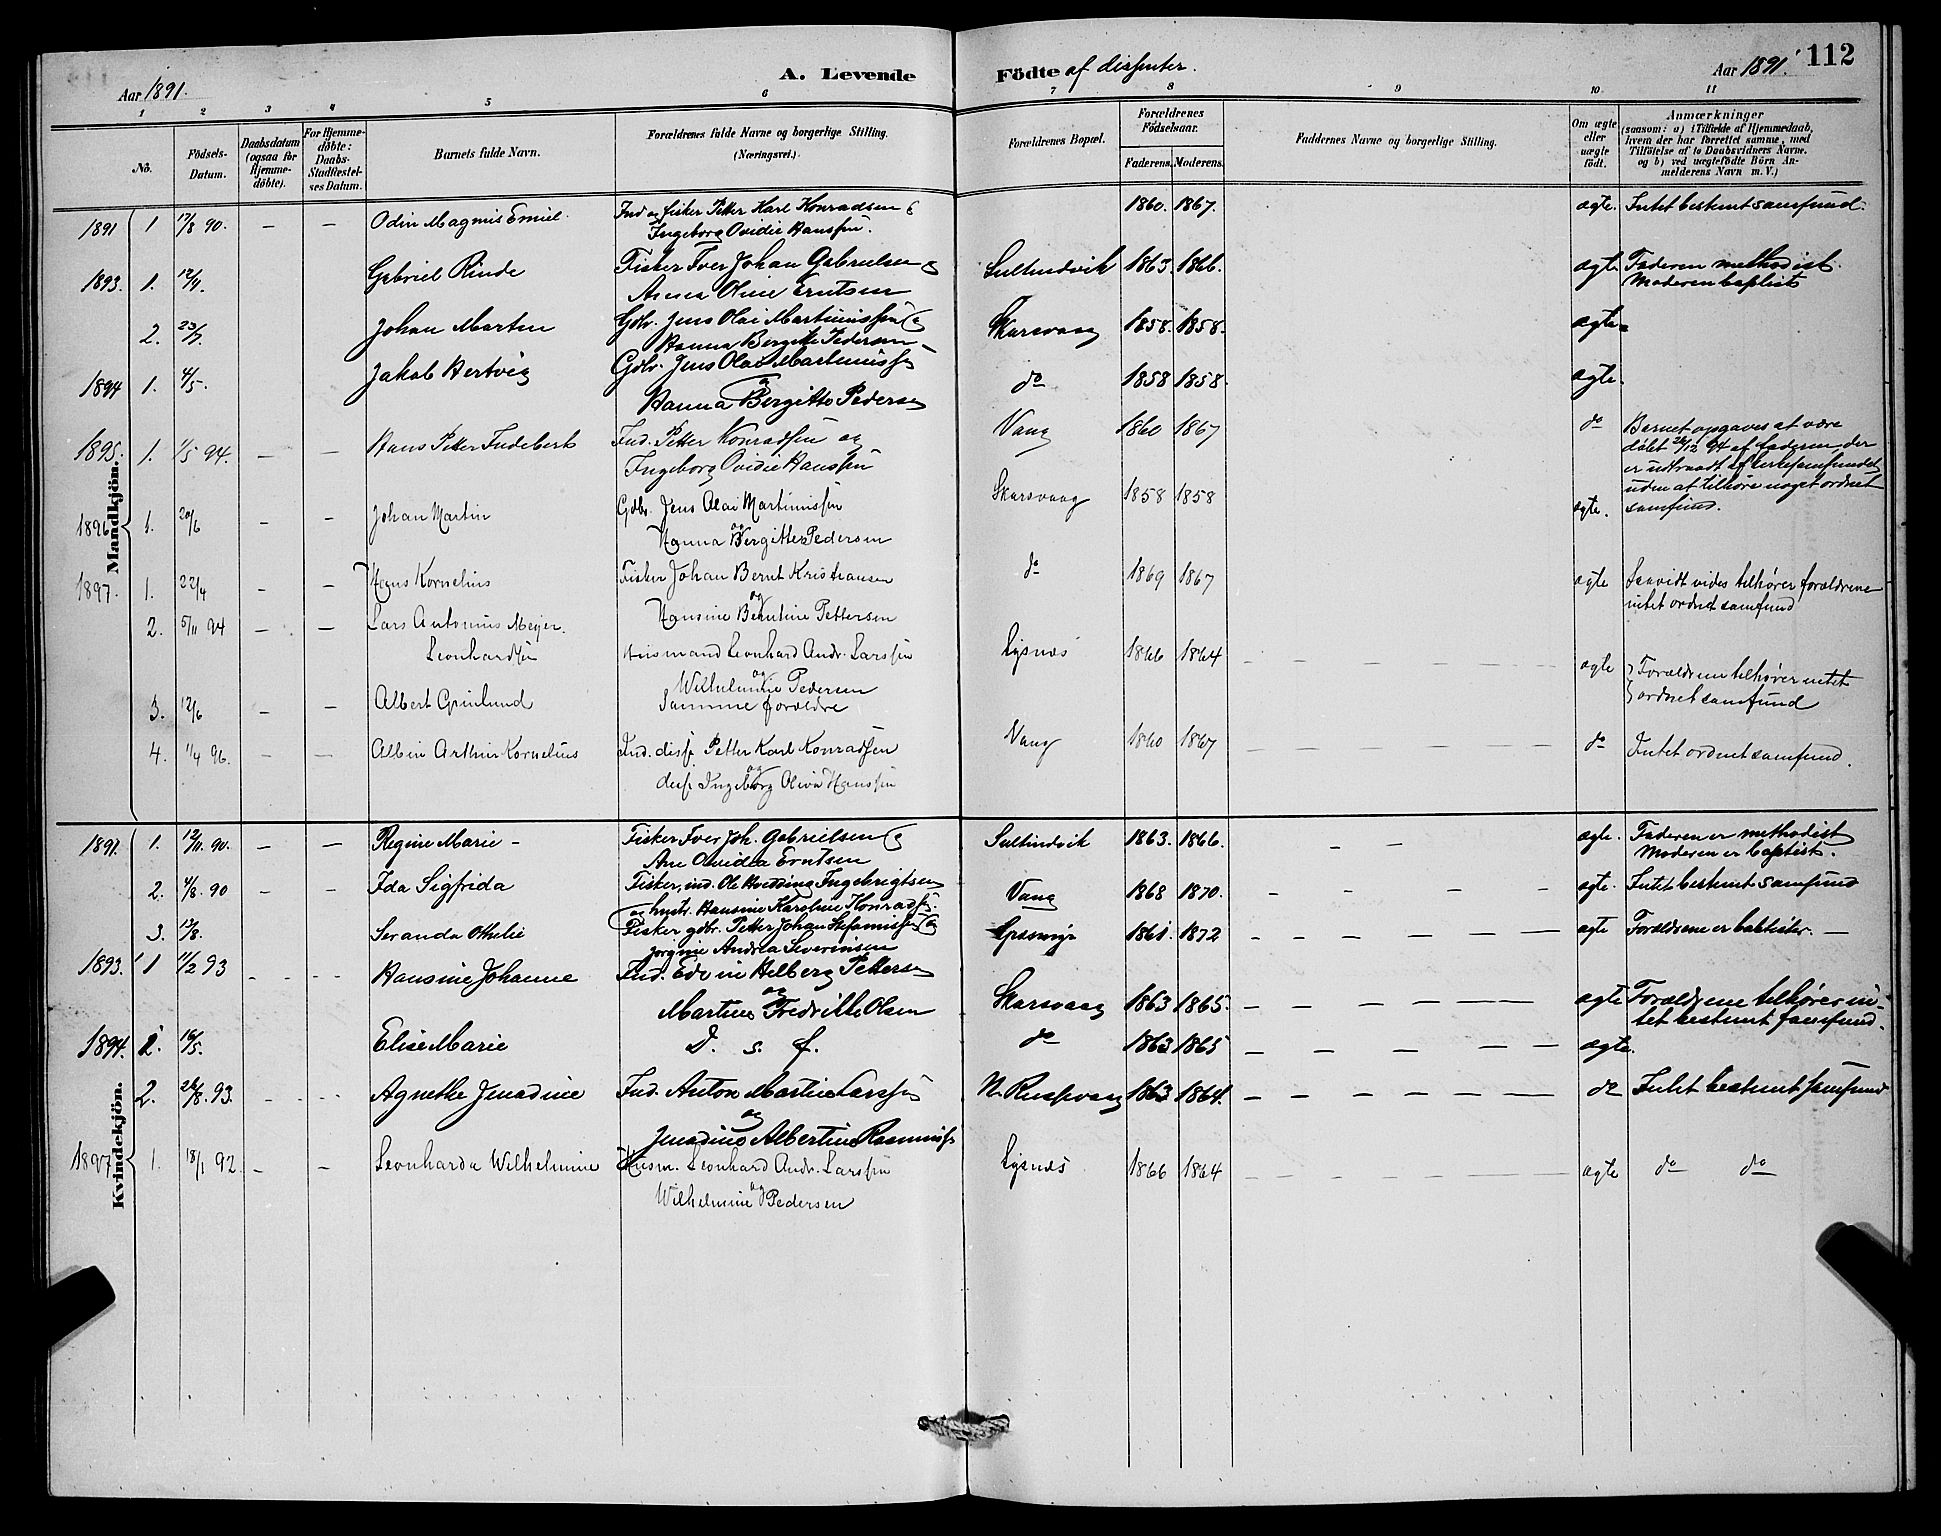 Aar 1891. A. Levende Födte af dissenter. Aar 1891. 112
1 2 3 4 5 6 7 8 9 10 11
No. Födsels-Datum. Daabsdatum (ogsaa for Hjemme-döbte). For Hjemme-döbte: Daabs-Stadfæstel-ses Datum. Barnets fulde Navn. Forældrenes fulde Navne og borgerlige Stilling. (Næringsvei.) Forældrenes Bopæl. Forældrenes Födselsaar. Faderens. Moderens. Faddernes Navne og borgerlige Stilling. Om ægte eller uægte födt. Anmærkninger (saasom: a) i Tilfælde af Hjemmedaab, hvem der har forrettet samme, med Tilföielse af to Daabsvidners Navne. og b) ved uægtefödte Börn An-melderens Navn m. V.)
Mandkjön.
1891 1 17/8 90. — — Odin Magnus Emiel. Ind og fisker Petter Karl Konradsen & 1860. 1867. ægte. Intet bestemt samfund.
Ingeborg Ovidie Hanssen.
1893. 1. 12/4. Gabriel Rinde Fisker Iver Johan Gabrielsen & Sultindvik 1863. 1866. ægte Faderen methodist.
Anna Oline Erntsen Moderen baptist
2. 23/7. Johan Martin Gdbr. Jens Olai Martinussen og Skarsvaag 1858. 1858. ægte
Hanna Bergitte Pedersen
1894 1. 4/5. Jakob Hertvig Gdbr. Jens Olai Martinussen do 1858 1858. ægte.
og
Hanna Bergitte Pedersen
1895. 1. 1/5 94. — — Hans Petter Indebert Ind. Petter Konradsen og Vang 1860 1867 do Barnet opgaves at være
Ingeborg Ovidie Hanssen døbt 26/12 94 af faderen, der
er udtraadt af kirkesamfundet
uden at tilhøre noget ordnet
samfund.
1896 1. 20/6 — — Johan Martin Gdbr. Jens Olai Martinussen Skarsvaag 1858 1858 ægte.
og
Hanna Bergitte Pedersen
1897. 1. 22/4 — — Hans Kornelius Fisker Johan Bernt Kristiansen do 1869 1867 ægte Saavidt vides tilhører forældrene
og intet ordnet samfund
Hansine Berntine Pettersen
2. 5/11 94 — — Lars Antonius Meyer.
Leonhardsen Husmand Leonhard Andr. Larssen Lysnes 1866 1864 ægte Forældrene tilhører intet
og ordnet samfund
Wilhelmine Pedersen
3. 12/6 — — Albert Grinlund Samme forældre
4. 1/4 96. — — Albin Arthur Kornelius Ind. diss. Petter Karl Konradsen Vang 1860 1867 do Intet ordnet samfund.
og
diss. Ingeborg Olivia Hanssen
Kvindekjön.
1891. 1. 12/11. 90. — — Regine Marie - Fisker Iver Joh. Gabrielsen og Sultindvik 1863. 1866. ægte. Faderen er methodist
Ane Ovidea Erntsen Moderen er baptist.
2. 4/8. 90 — — Ida Sigfrida Fisker, ind. Ole Hvedding Ingebrigtsen Vang 1868 1870. ægte. Intet bestemt samfund
og hustr. Hansine Karoline Konradss.
3. 13/8. Seranda Othilie Fisker gdbr. Petter Johan Stefanussen og 1861. 1872 ægte Forældrene er babtister. —
Jorgine Andrea Severinsen
1893. 1 11/2 93 Hansine Johanne Ind. Edvin Helberg Pettersen
og Skarsvaag 1863 1865. ægte Forældrene tilhører in-
Martine Fredrikke Olsen tet bestemt samfund.
1894. 1. 16/5. Elise Marie D. s. f. do 1863 1865 ægte.
2. 26/8. 93. Agnethe Jenadine Ind. Anton Martin Larssen 1863 1864. do Intet bestemt samfund
og
Jenadine Albertine Rasmuss.
1897 1. 18/1 92. — — Leonharda Wilhelmine Husm. Leonhard Andr. Larssen Lysnes 1866 1864 ægte do do
og
Wilhelmine Pedersen